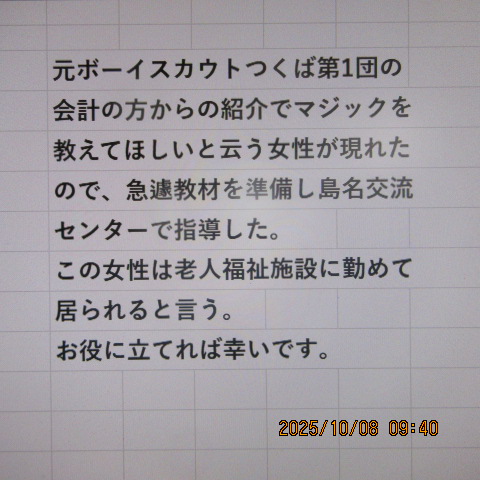 元ボーイスカウトつくば第1団の
会計の方からの紹介でマジックを
教えてほしいと云う女性が現れた
ので、急遽教材を準備し島名交流
センターで指導した。
この女性は老人福祉施設に勤めて
居られると言う。
お役に立てれば幸いです。
2025/10/08 09:40